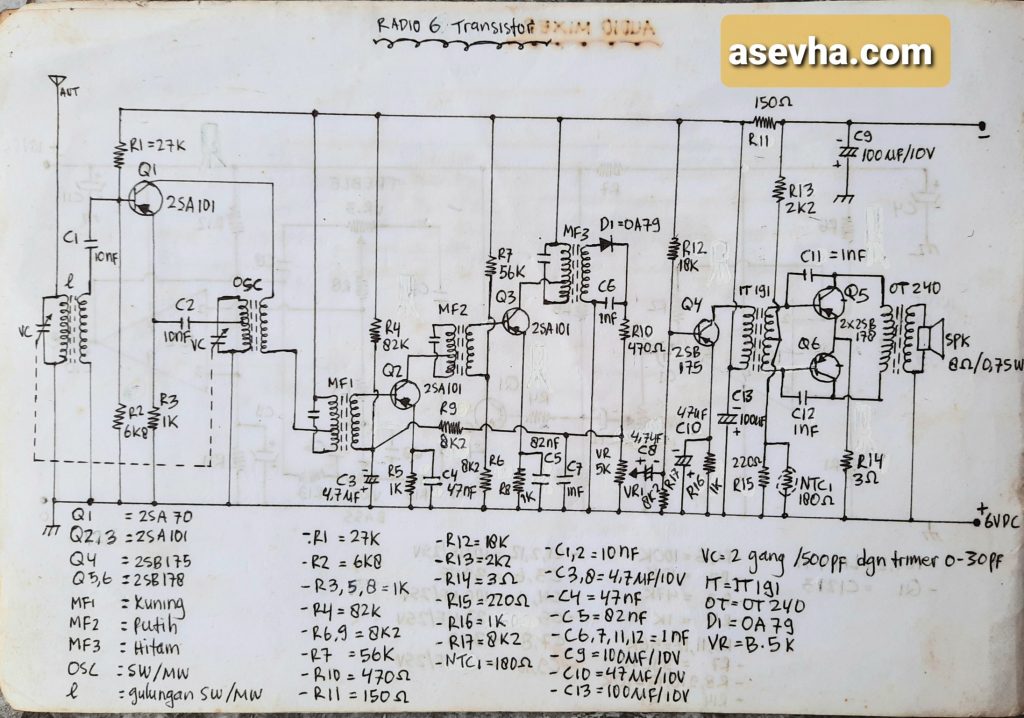 RADIO 6 Transistor
AUDIO MIXE
asevha.com
ANT
R1=27K
Q1
2SA101
C1
10nF
l
VC
R2
6K8
R3
1K
C2
10nF
VC
OSC
MF1
C3
4,7µF
R4
82K
Q2
2SA101
R5
1K
C4
47nF
R9
8K2
MF2
R7
56K
Q3
2SA101
8K2
R6
R8
1K
82nF
C5
C7
1nF
MF3
D1=0A79
C6
1nF
R10
470Ω
VR
5K
VR1
4,7µF
C8
8K2
R17
R12
18K
Q4
2SB
175
47µF
C10
R16
1K
150Ω
R11
IT191
C13
100µF
220Ω
R15
NTC1
180Ω
R13
2K2
C9
100µF/10V
C11=1nF
Q5
2x2SB
178
Q6
C12
1nF
R14
3Ω
OT240
SPK
8Ω/0,75W
-
+
6VDC
Q1 = 2SA70
Q2,3 = 2SA101
Q4 = 2SB175
Q5,6 = 2SB178
MF1 = Kuning
MF2 = Putih
MF3 = Hitam
OSC = SW/MW
l = gulungan SW/MW
-R1 = 27K
-R2 = 6K8
-R3,5,8 = 1K
-R4 = 82K
-R6,9 = 8K2
-R7 = 56K
-R10 = 470Ω
-R11 = 150Ω
-R12 = 18K
-R13 = 2K2
-R14 = 3Ω
-R15 = 220Ω
-R16 = 1K
-R17 = 8K2
-NTC1 = 180Ω
-C1,2 = 10nF
-C3,8 = 4,7µF/10V
-C4 = 47nF
-C5 = 82nF
-C6,7,11,12 = 1nF
-C9 = 100µF/10V
-C10 = 47µF/10V
-C13 = 100µF/10V
VC = 2 gang /500pF dgn trimer 0-30pF
IT = IT191
OT = OT240
D1 = 0A79
VR = B.5K